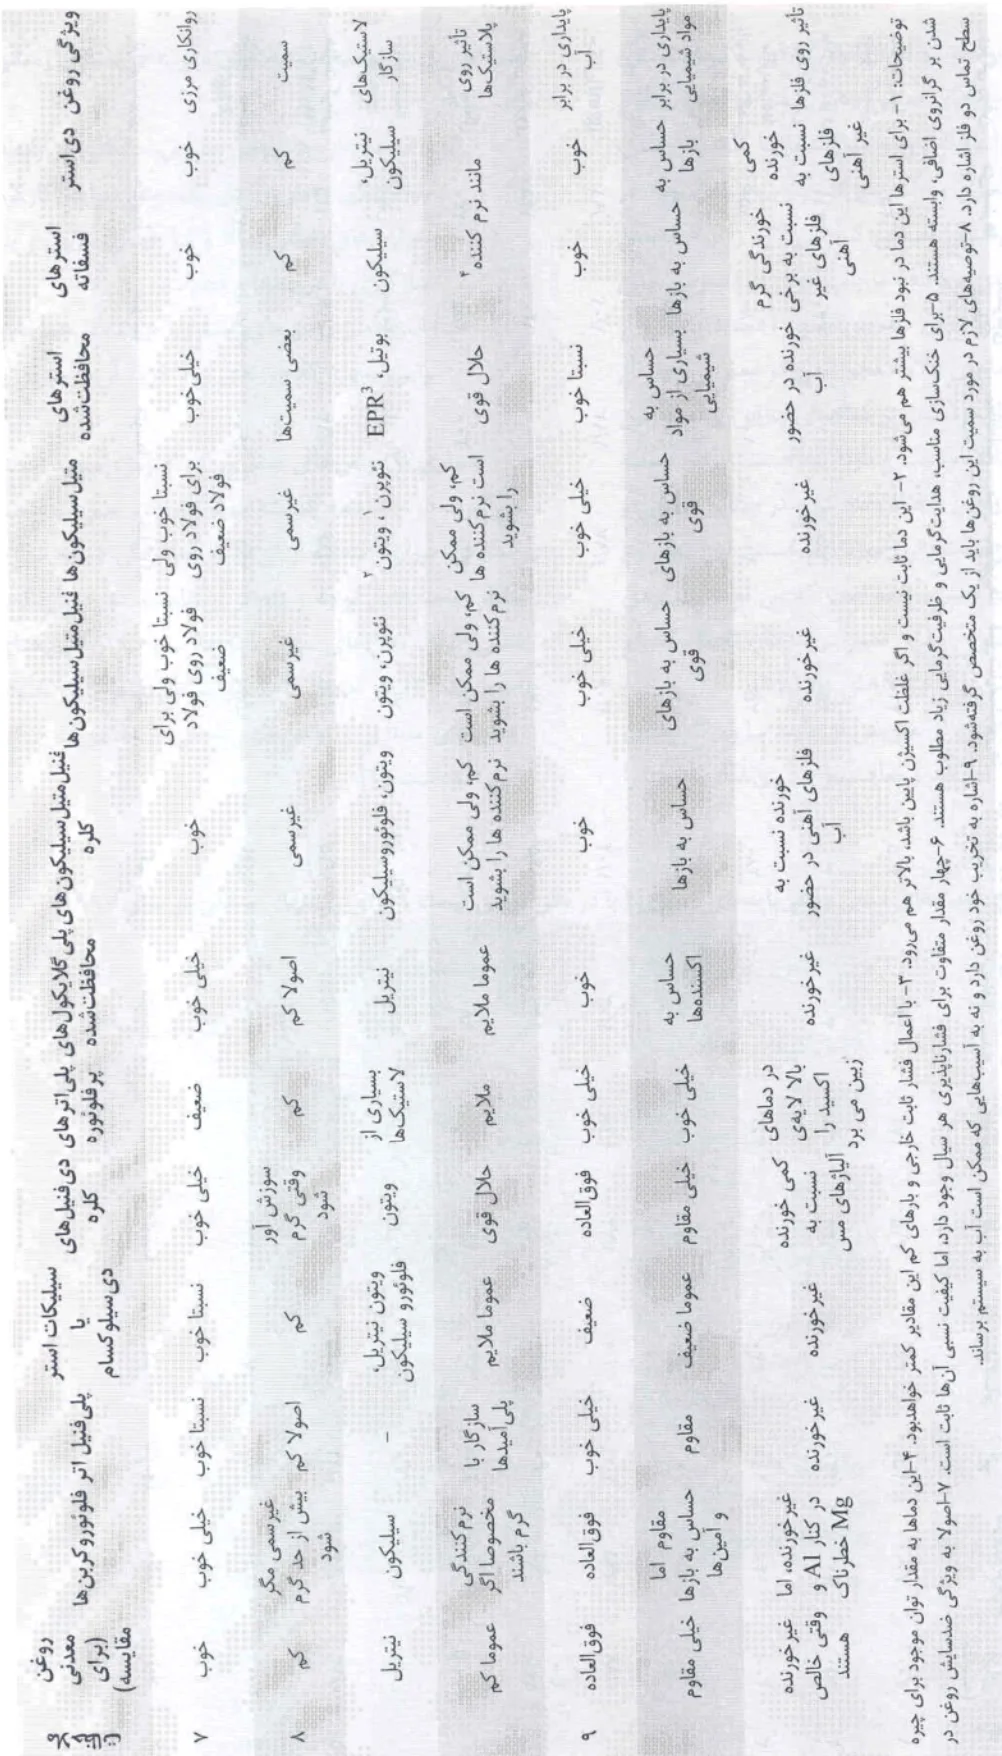 ویژگی روغن
دی‌استر
استرهای
فسفاته
استرهای
محافظت‌شده
متیل‌سیلیکون‌ها
فنیل‌متیل‌سیلیکون‌ها
فنیل‌متیل‌سیلیکون‌های
کلره
پلی‌گلایکول‌های
محافظت‌شده
پلی‌اترهای
پرفلوئوره
دی‌فنیل‌های
کلره
سیلیکات استر
یا
دی‌سیلوکسام
پلی‌فنیل اتر
فلوئوروکربن‌ها
روغن
معدنی
(برای
مقایسه)
روانکاری مرزی
خوب
خوب
خیلی خوب
نسبتا خوب ولی
برای فولاد روی
فولاد ضعیف
نسبتا خوب ولی برای
فولاد روی فولاد
ضعیف
خوب
خیلی خوب
ضعیف
خیلی خوب
نسبتا خوب
نسبتا خوب
خیلی خوب
خوب
۷
سمیت
کم
کم
بعضی سمیت‌ها
غیرسمی
غیرسمی
غیرسمی
اصولا کم
کم
سوزش آور
وقتی گرم
شود
کم
اصولا کم
غیرسمی مگر
بیش از حد گرم
شود
کم
۸
لاستیک‌های
سازگار
نیتریل،
سیلیکون
سیلیکون
بوتیل، EPR³
نئوپرن ۱، ویتون ۲
نئوپرن، ویتون
ویتون، فلوئوروسیلیکون
نیتریل
بسیاری از
لاستیک‌ها
ویتون
ویتون نیتریل،
فلوئورو سیلیکون
-
سیلیکون
نیتریل
تاثیر روی
پلاستیک‌ها
مانند نرم کننده ۴
حلال قوی
کم، ولی ممکن
است نرم‌کننده ها
را بشوید
کم، ولی ممکن است
نرم‌کننده ها را بشوید
کم، ولی ممکن است
نرم‌کننده ها را بشوید
عموما ملایم
ملایم
حلال قوی
عموما ملایم
سازگار با
پلی‌آمیدها
نرم‌کنندگی
مخصوصا اگر
گرم باشند
عموما کم
پایداری در برابر
آب
خوب
خوب
نسبتا خوب
خیلی خوب
خیلی خوب
خوب
خوب
خیلی خوب
فوق‌العاده
ضعیف
خیلی خوب
فوق‌العاده
فوق‌العاده
۹
پایداری در برابر
مواد شیمیایی
حساس به
بازها
حساس به بازها
حساس به
بسیاری از مواد
شیمیایی
حساس به بازهای
قوی
حساس به بازهای
قوی
حساس به بازها
حساس به
اکسنده‌ها
خیلی خوب
خیلی مقاوم
عموما ضعیف
مقاوم
مقاوم اما
حساس به بازها
و آمین‌ها
خیلی مقاوم
تاثیر روی فلزها
کمی
خورنده
نسبت به
فلزهای
غیر آهنی
خورندگی گرم
نسبت به برخی
فلزهای غیر
آهنی
خورنده در حضور
آب
غیرخورنده
غیرخورنده
خورنده نسبت به
فلزهای آهنی در حضور
آب
غیرخورنده
در دماهای
بالا لایه‌ی
اکسید را
زبین می برد
کمی خورنده
نسبت به
آلیاژهای مس
غیرخورنده
غیرخورنده
غیرخورنده، اما
در کنار Al و
Mg خطرناک
غیرخورنده
وقتی خالص
هستند
توضیحات: ۱- برای استرها این دما در نبود فلزها بیشتر هم می‌شود. ۲- این دما ثابت نیست و اگر غلظت اکسیژن پایین باشد، بالاتر هم می‌رود. ۳- با اعمال فشار ثابت خارجی و بارهای کم این مقادیر کمتر خواهدبود. ۴-این دماها به مقدار توان موجود برای چیره
شدن بر گرانروی اضافی وابسته هستند. ۵-برای خنک‌سازی مناسب، هدایت‌گرمایی و ظرفیت‌گرمایی زیاد مطلوب هستند. ۶-چهار مقدار متفاوت برای فشارناپذیری هر سیال وجود دارد، اما کیفیت نسبی آن‌ها ثابت است. ۷-اصولا به ویژگی ضدسایش روغن در
سطح تماس دو فلز اشاره دارد. ۸-توصیه‌های لازم در مورد سمیت این روغن‌ها باید از یک متخصص گرفته‌شود. ۹-اشاره به تخریب خود روغن دارد و نه به آسیب‌هایی که ممکن است آب به سیستم برساند.